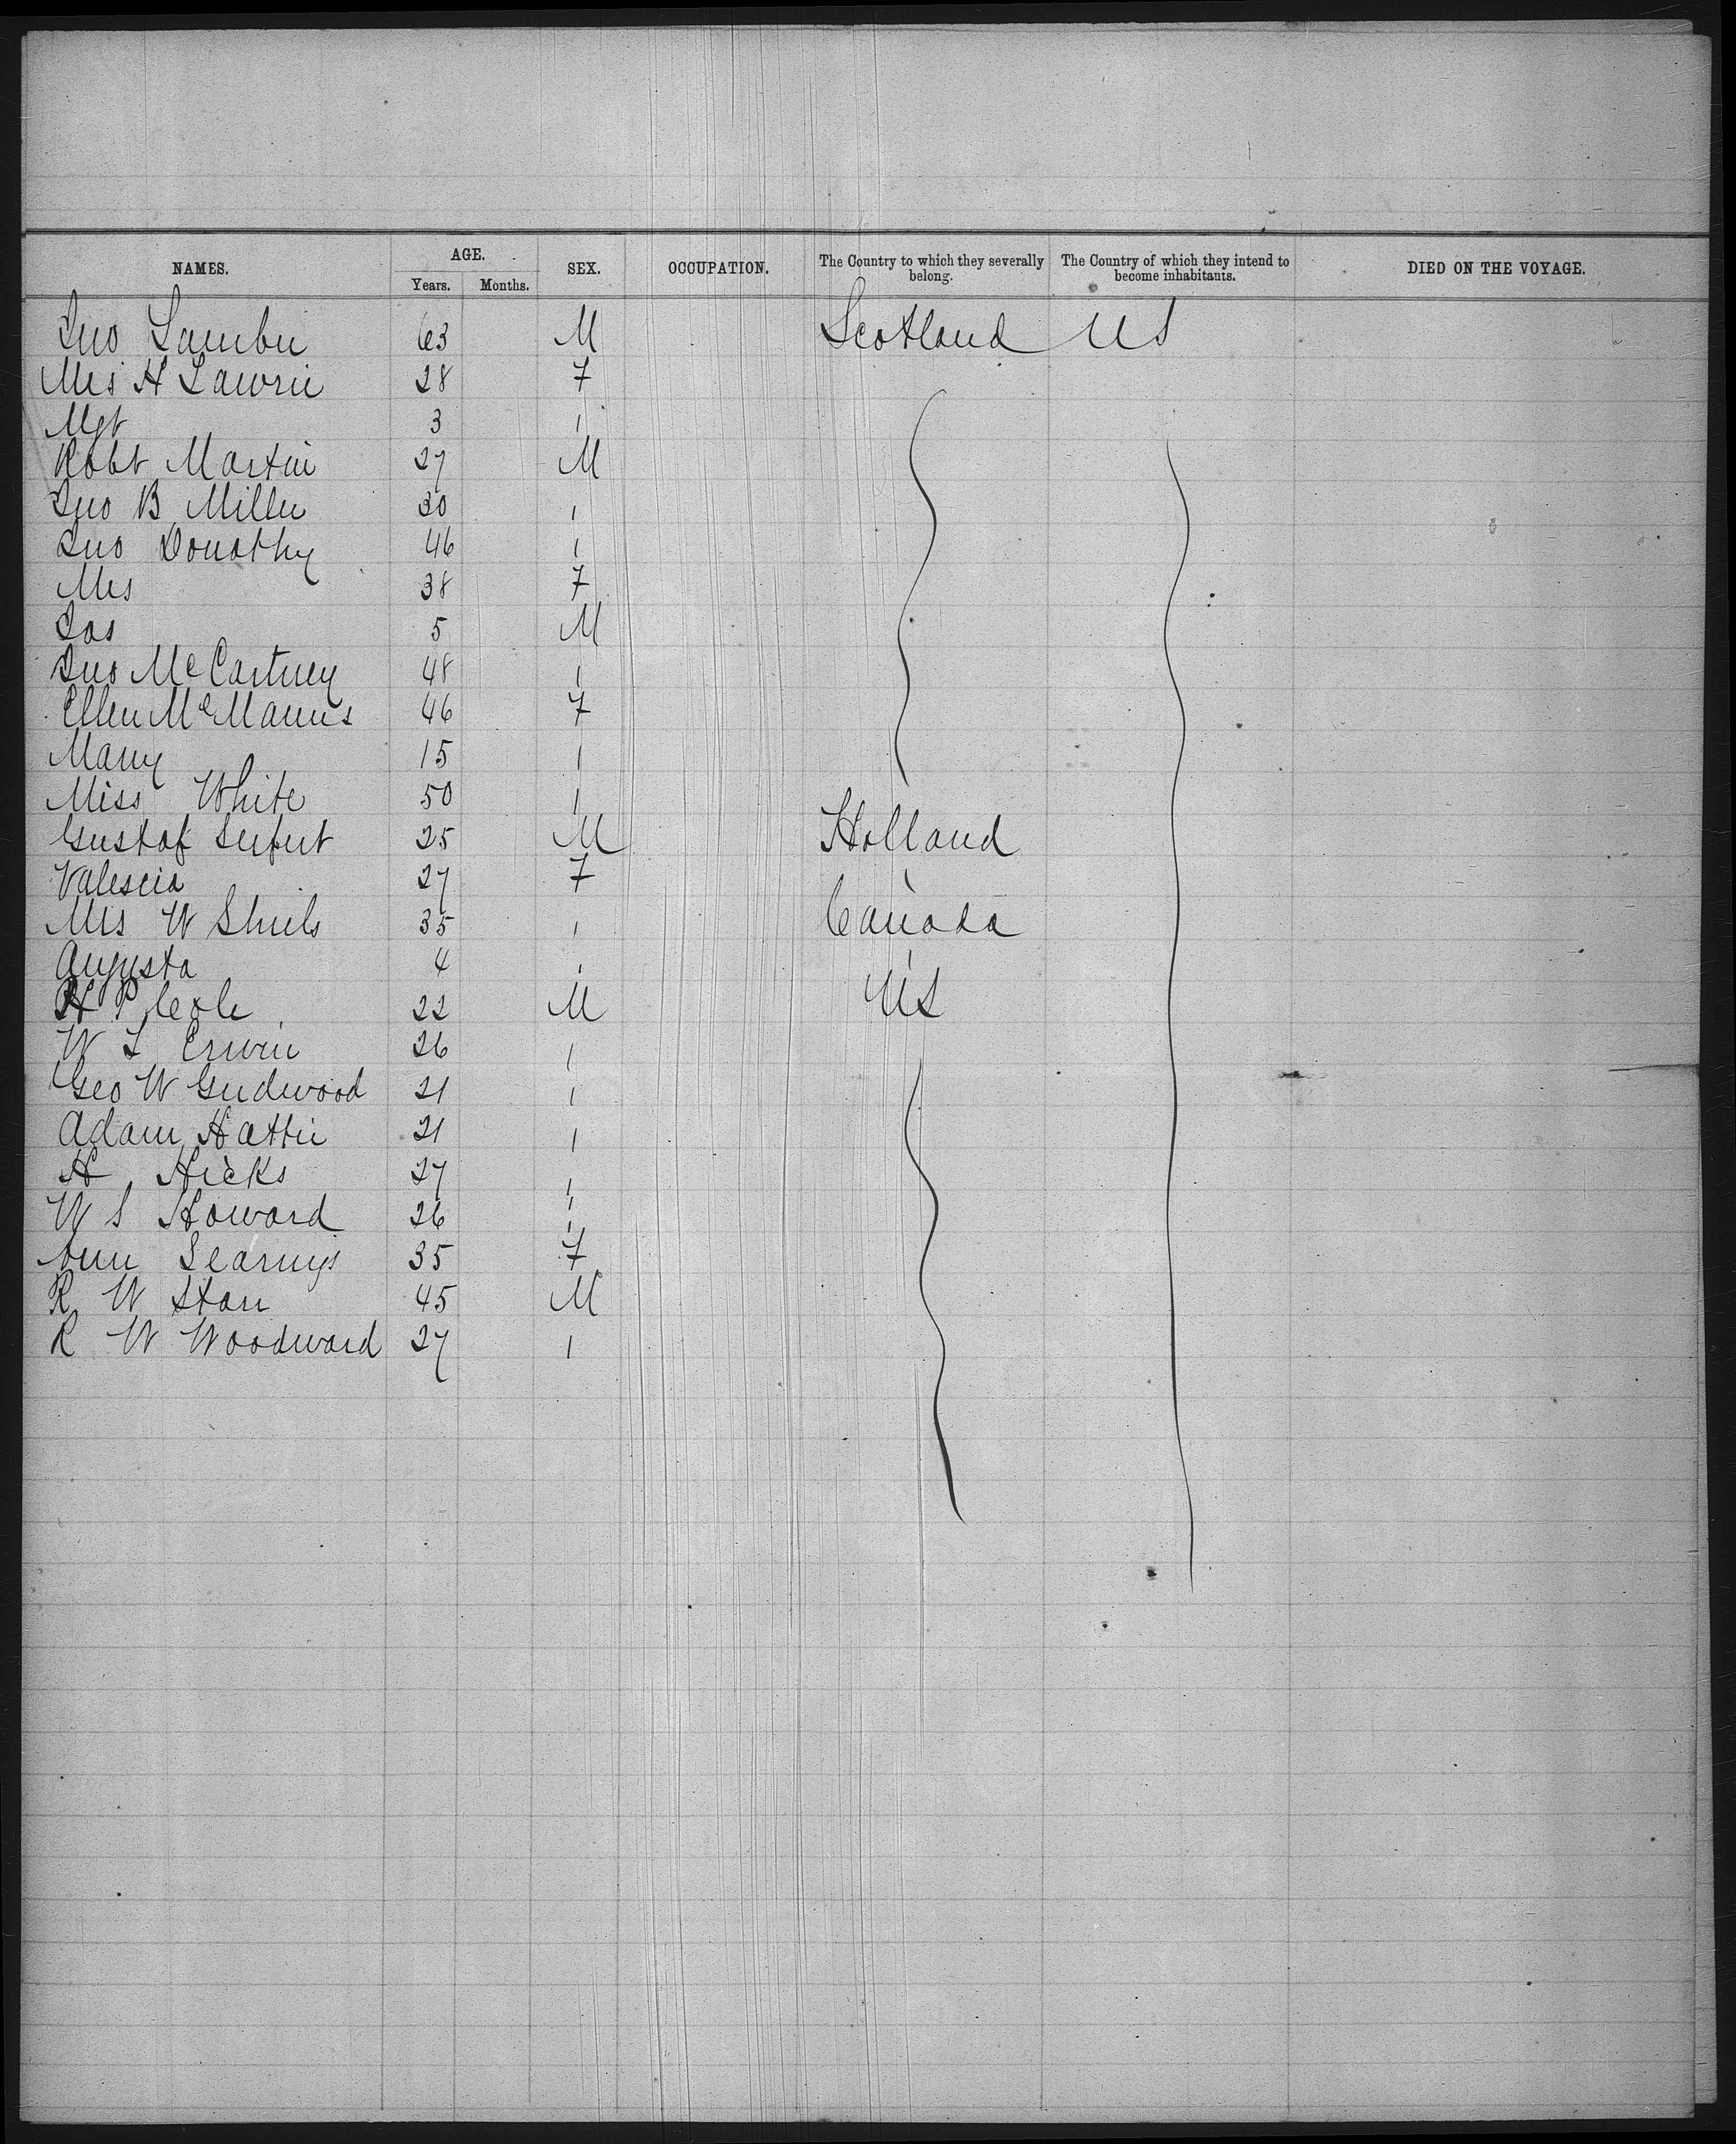 NAMES. AGE. SEX. OCCUPATION. The Country to which they severally belong. The Country of which they intend to become inhabitants. DIED ON THE VOYAGE.
Years. Months.
Jno 63 M Scotland US
Mrs H Lawrie 28 F
Mgt 3 "
Robt Martin 27 M
Jno B Miller 30 "
Jno 46 "
Mrs 38 F
Jas 5 M
Jno McCartney 48 "
Ellen McManus 46 F
Mary 15 "
Miss White 50 "
Gustaf Seifert 25 M Holland
Valescia 27 F "
Mrs W Shiels 35 " Canada
Augusta 4 " "
H P Cole 22 M US
W L Erwin 26 "
Geo W 21 "
Adam Hattie 21 "
H Hicks 27 "
W S Howard 26 "
Ann 35 F
R W Starr 45 M
R W Woodward 27 "